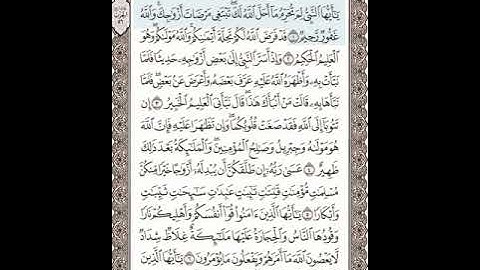 يَٰٓأَيُّهَا ٱلنَّبِيُّ لِمَ تُحَرِّمُ مَآ أَحَلَّ ٱللَّهُ لَكَۖ تَبۡتَغِي مَرۡضَاتَ أَزۡوَٰجِكَۚ وَٱللَّهُ
غَفُورٞ رَّحِيمٞ ١ قَدۡ فَرَضَ ٱللَّهُ لَكُمۡ تَحِلَّةَ أَيۡمَٰنِكُمۡۚ وَٱللَّهُ مَوۡلَىٰكُمۡۖ وَهُوَ
ٱلۡعَلِيمُ ٱلۡحَكِيمُ ٢ وَإِذۡ أَسَرَّ ٱلنَّبِيُّ إِلَىٰ بَعۡضِ أَزۡوَٰجِهِۦ حَدِيثٗا فَلَمَّا
نَبَّأَتۡ بِهِۦ وَأَظۡهَرَهُ ٱللَّهُ عَلَيۡهِ عَرَّفَ بَعۡضَهُۥ وَأَعۡرَضَ عَنۢ بَعۡضٖۖ فَلَمَّا
نَبَّأَهَا بِهِۦ قَالَتۡ مَنۡ أَنۢبَأَكَ هَٰذَاۖ قَالَ نَبَّأَنِيَ ٱلۡعَلِيمُ ٱلۡخَبِيرُ ٣ إِن
تَتُوبَآ إِلَى ٱللَّهِ فَقَدۡ صَغَتۡ قُلُوبُكُمَاۖ وَإِن تَظَٰهَرَا عَلَيۡهِ فَإِنَّ ٱللَّهَ
هُوَ مَوۡلَىٰهُ وَجِبۡرِيلُ وَصَٰلِحُ ٱلۡمُؤۡمِنِينَۖ وَٱلۡمَلَٰٓئِكَةُ بَعۡدَ ذَٰلِكَ
ظَهِيرٌ ٤ عَسَىٰ رَبُّهُۥٓ إِن طَلَّقَكُنَّ أَن يُبۡدِلَهُۥٓ أَزۡوَٰجًا خَيۡرٗا مِّنكُنَّ
مُسۡلِمَٰتٖ مُّؤۡمِنَٰتٖ قَٰنِتَٰتٖ تَٰٓئِبَٰتٍ عَٰبِدَٰتٖ سَٰٓئِحَٰتٖ ثَيِّبَٰتٖ
وَأَبۡكَارٗا ٥ يَٰٓأَيُّهَا ٱلَّذِينَ ءَامَنُواْ قُوٓاْ أَنفُسَكُمۡ وَأَهۡلِيكُمۡ نَارٗا
وَقُودُهَا ٱلنَّاسُ وَٱلۡحِجَارَةُ عَلَيۡهَا مَلَٰٓئِكَةٌ غِلَاظٞ شِدَادٞ
لَّا يَعۡصُونَ ٱللَّهَ مَآ أَمَرَهُمۡ وَيَفۡعَلُونَ مَا يُؤۡمَرُونَ ٦ يَٰٓأَيُّهَا ٱلَّذِينَ